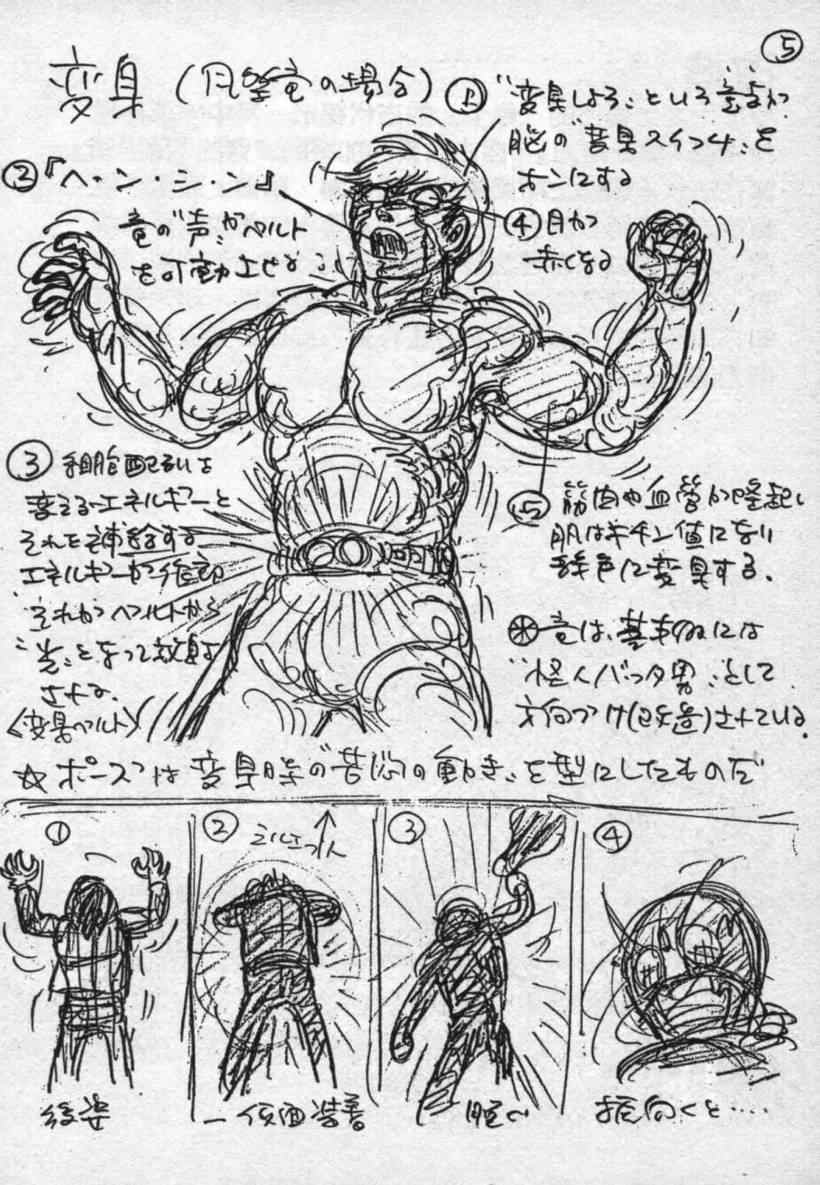 ⑤
変身(风望竜の場合)
①"変身しよう"という意志が
脳の"変身スイッチ"を
オンにする
②『ヘ・ン・シ・ン』
竜の"声"がベルト
を可動させる
④目が
赤くなる
③細胞配列を
変えるエネルギーと
それを補給する
エネルギーが作動
それがベルトから
"光"となって放射
される。
〈変身ベルト〉
⑤筋肉や血管が隆起し
肌はキチン値になり
緑色に変身する。
※竜は、基本的には
"怪人バッタ男"として
方向づけ(改造)されている。
☆ポーズは変身時の"苦悶の動き"を型にしたものだ
①
後姿
②
仮面装着
③
脱ぐ
④
振向くと‥‥